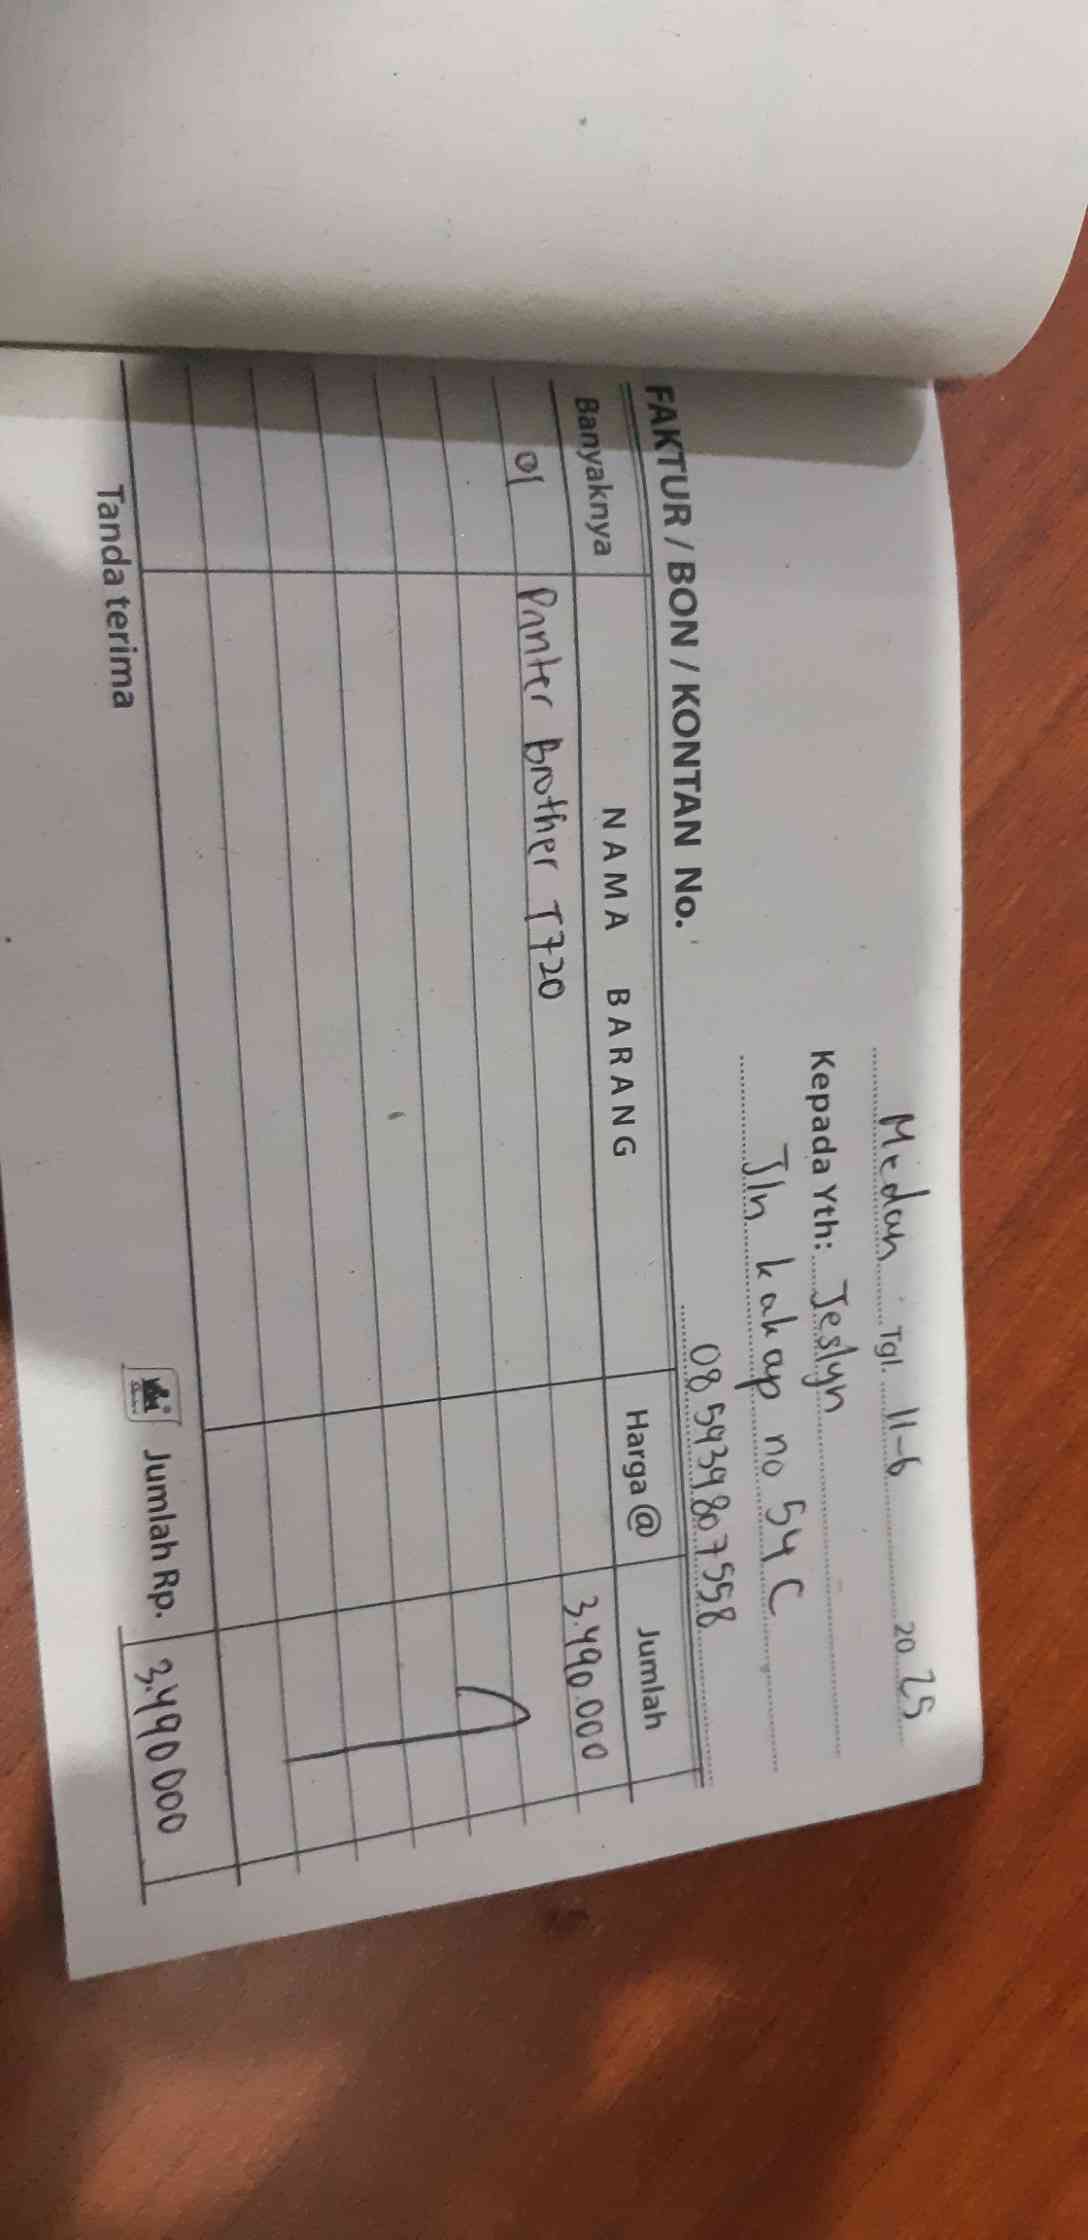 Medan Tgl. 11-6 20 25
Kepada Yth: Jeslyn
Jln kakap no 54 C
085939807558
FAKTUR / BON / KONTAN No.
Banyaknya NAMA BARANG Harga @ Jumlah
01 Printer Brother T720 3.490.000
Tanda terima Jumlah Rp. 3.490 000